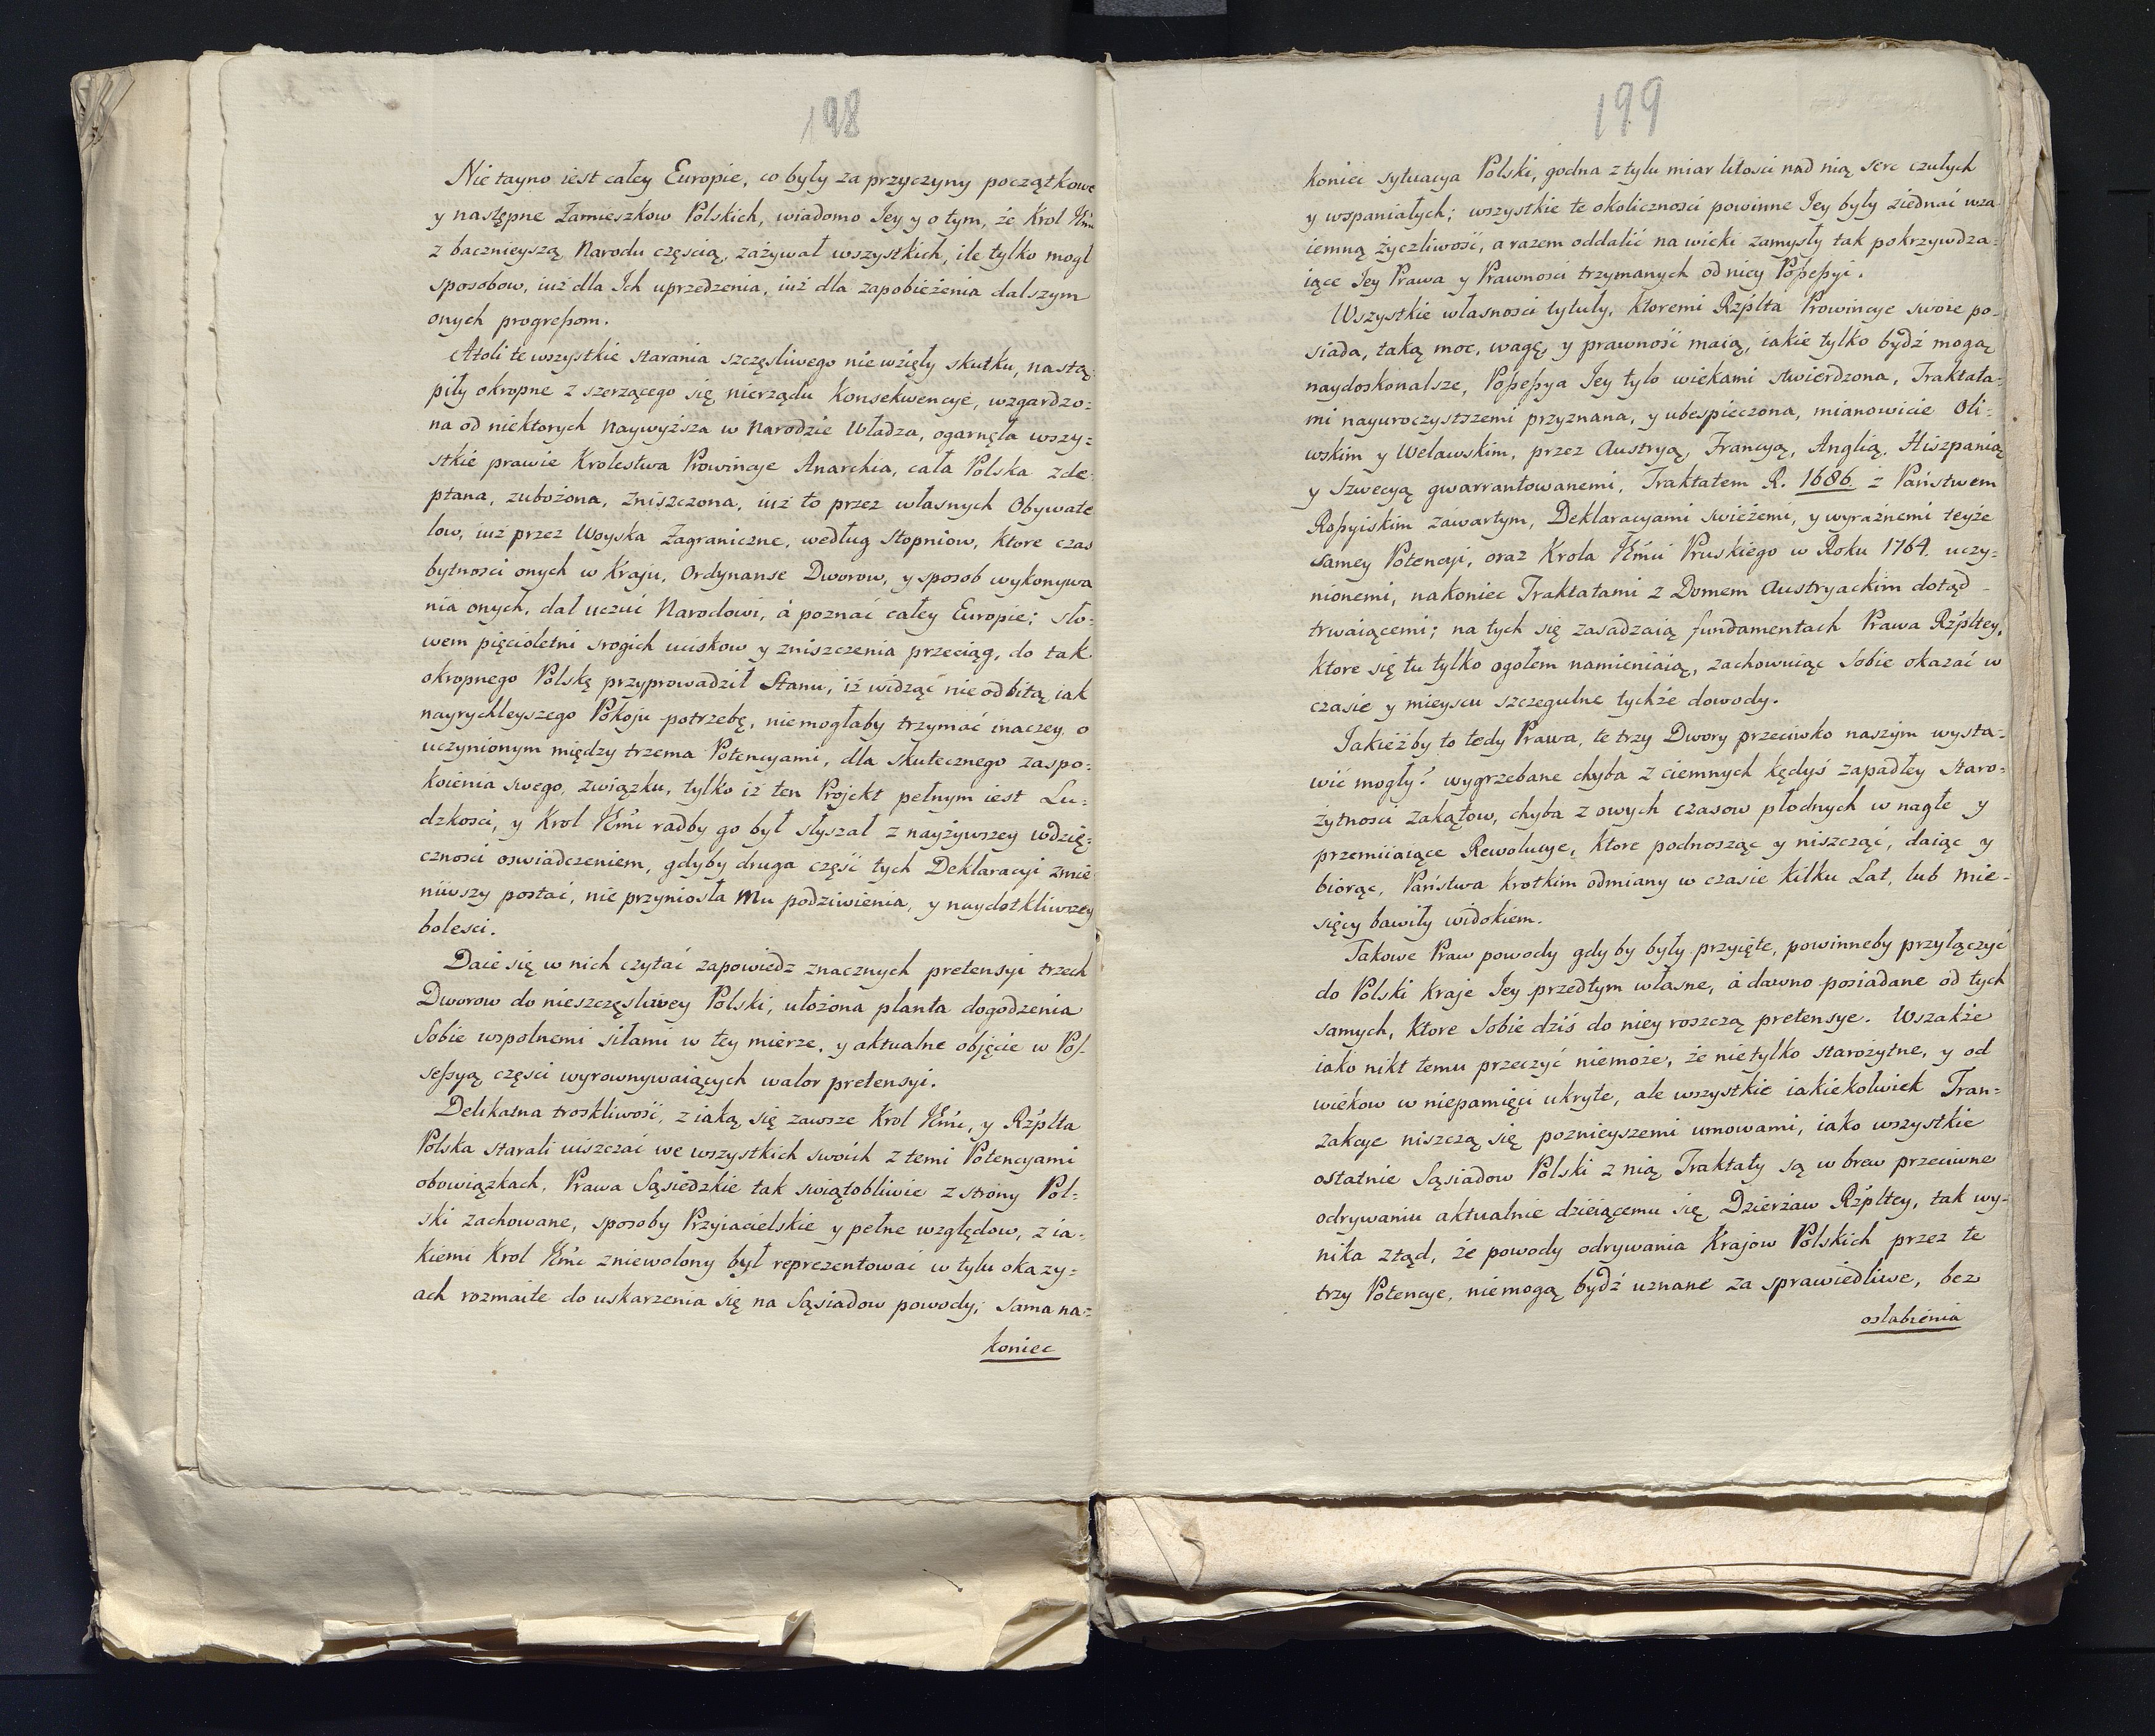 198
Nie tayno iest całey Europie, co były za przyczyny początkowe
y następne Zamieszkow Polskich, wiadomo Jey y o tym, że Krol JEmć
z bacznieyszą Narodu częścią, zażywał wszystkich, ile tylko mogł
sposobow, iuż dla Ich uprzedzenia, iuż dla zapobieżenia dalszym
onych progreßom.
Atoli te wszystkie starania szczęsliwego nie wzięły skutku, nastą-
piły okropne z szerzącego się nierządu Konsekwencye, wzgardzo=
na od niektorych Naywyższa w Narodzie Władza, ogarnęła wszy=
stkie prawie Krolestwa Prowincye Anarchia, cała Polska zde-
ptana, zubożona, zniszczona, iuż to przez własnych Obywate
low, iuż przez Woyska Zagraniczne, według Stopniow, Ktore czas
bytnosci onych w Kraju, Ordynanse Dworow, y sposob wykonywa
nia onych, dał uczuć Narodowi, á poznać całey Europie; sło=
wem pięcioletni srogich uciskow y zniszczenia przeciąg, do tak
okropnego Polskę przyprowadził Stanu, iż widząć nie odbitą iak
nayrychleyszego Pokoju potrzebę, niemogłaby trzymać inaczey o
uczynionym między trzema Potencyami, dla skutecznego zaspo=
koienia swego, związku, tylko iż ten Projekt pełnym iest Lu=
dzkosci, y Krol JEmć radby go był słyszał z nayżywszey wdzię=
cznosci oswiadczeniem, gdyby druga część tych Deklaracyi zmie
niwszy postać, nie przyniosła Mu podziwienia, y naydotkliwszey
bolesci.
Daie się w nich czytać zapowiedz znacznych pretensyi trzech
Dworow do nieszczęsliwey Polski, ułożona planta dogodzenia
Sobie wspolnemi siłami w tey mierze, y aktualne objęcie w Pos-
seßyą częsci wyrownywaiących walor pretensyi.
Delikatna troskliwość, z iaką się zawsze Krol JEmć, y Rzplta
Polska starali uiszczać we wszystkich swoich z temi Potencyami
obowiązkach, Prawa Sąsiedzkie tak swiątobliwie z strony Pol=
ski zachowane, sposoby Przyiacielskie y pełne względow, z ia=
kiemi Krol JEmć zniewolony był reprezentować w tylu okazy=
ach rozmaite do uskarzenia się na Sąsiadow powody; sama na=
koniec
199
koniec sytuacya Polski, godna z tylu miar litosci nad nią serc czułych
y wspaniałych; wszystkie te okolicznosci powinne Jey były ziednać wza
iemną życzliwość, a razem oddalić na wieki zamysły tak pokrzywdza=
iące Jey Prawa y Prawnosci trzymanych od niey Poßeßyi.
Wszystkie własnosci tytuły, ktoremi Rzplta Prowincye swoie po-
siada, taką moc, wagę, y prawność maią, iakie tylko bydź mogą
naydoskonalsze, Poßeßya Jey tylo wiekami stwierdzona, Traktata=
mi nayuroczystszemi przyznana, y ubespieczona, mianowicie Oli=
wskim y Welawskim, przez Austryą, Francyą, Anglią, Hiszpanią
y Szwecyą gwarrantowanemi, Traktatem R. 1686. z Państwem
Roßyiskim zawartym, Deklaracyami swieżemi, y wyraźnemi teyże
samey Potencyi, oraz Krola JEmci Pruskiego w Roku 1764. uczy=
nionemi, nakoniec Traktatami z Domem Austryackim dotąd
trwaiącemi; na tych się zasadzaią fundamentach Prawa Rzpltey,
ktore się tu tylko ogołem namieniaią, zachowuiąc Sobie okazać w
czasie y mieyscu szczegulne tychże dowody.
Jakieżby to tedy Prawa, te trzy Dwory przeciwko naszym wysta=
wić mogły? wygrzebane chyba z ciemnych kędyś zapadłey staro=
żytnosci zakątow, chyba z owych czasow płodnych w nagłe y
przemiiaiące Rewolucye, Ktore podnosząc y niszcząć, daiąc y
biorąc, Państwa krotkim odmiany w czasie kilku Lat, lub Mie=
sięcy bawiły widokiem.
Takowe Praw powody gdy by były przyięte, powinneby przyłączyć
do Polski Kraje Jey przedtym własne, á dawno posiadane od tych
samych, Ktore Sobie dziś do niey roszczą pretensye. Wszakże
iako nikt temu przeczyć niemoże, że nietylko starożytne, y od
wiekow w niepamięci ukryte, ale wszystkie iakiekolwiek Tran=
zakcye niszczą się poznieyszemi umowami, iako wszystkie
ostatnie Sąsiadow Polski z nią Traktaty są w brew przeciwne
odrywaniu aktualnie dzieiącemu się Dzierżaw Rzpltey, tak wy=
nika ztąd, że powody odrywania Krajow Polskich przez te
trzy Potencye, niemogą bydź uznane za sprawiedliwe, bez
osłabienia